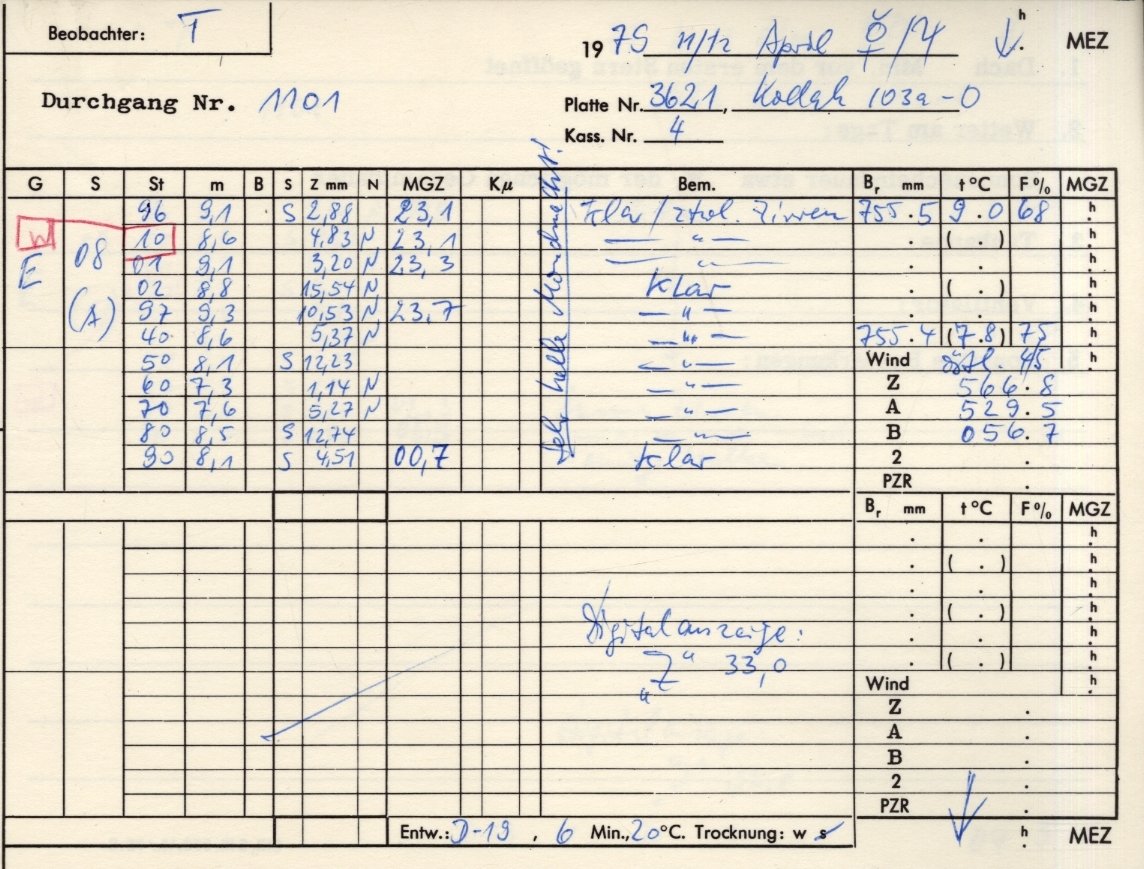 Beobachter: T
1979 11/12 April ♀/♃ h MEZ
Durchgang Nr. 1101
Platte Nr. 3621, Kodak 103a-O
Kass. Nr. 4
G S St m B S Z mm N MGZ Kμ Bem. Br mm t °C F % MGZ
96 9,1 S 2,88 23,1 klar / 755.5 9.0 68 h
W 10 8,6 4,83 N 23,1 — " — ( . )
E 08 01 9,1 3,20 N 23,3 — " — . . h
02 8,8 15,54 N klar . ( . )
(A) 97 9,3 10,53 N 23,7 — " — . . h
40 8,6 5,37 N — " — 755.4 (7.8) 75
50 8,1 S 12,23 — " — Wind östl. 4/5 h
60 7,3 1,14 N — " — Z 566.8
70 7,6 5,27 N — " — A 529.5
80 8,5 S 12,74 — " — B 056.7
90 8,1 S 4,51 00,7 klar 2 .
PZR .
Sehr helle Mondnacht!
Br mm t °C F % MGZ
. . h
. ( . ) h
. . h
. ( . ) h
. . h
. ( . ) h
Digitalanzeige:
"Z" 33,0
Wind h
Z .
A .
B .
2 .
PZR .
Entw.: D-19, 6 Min., 20°C. Trocknung: w s h MEZ